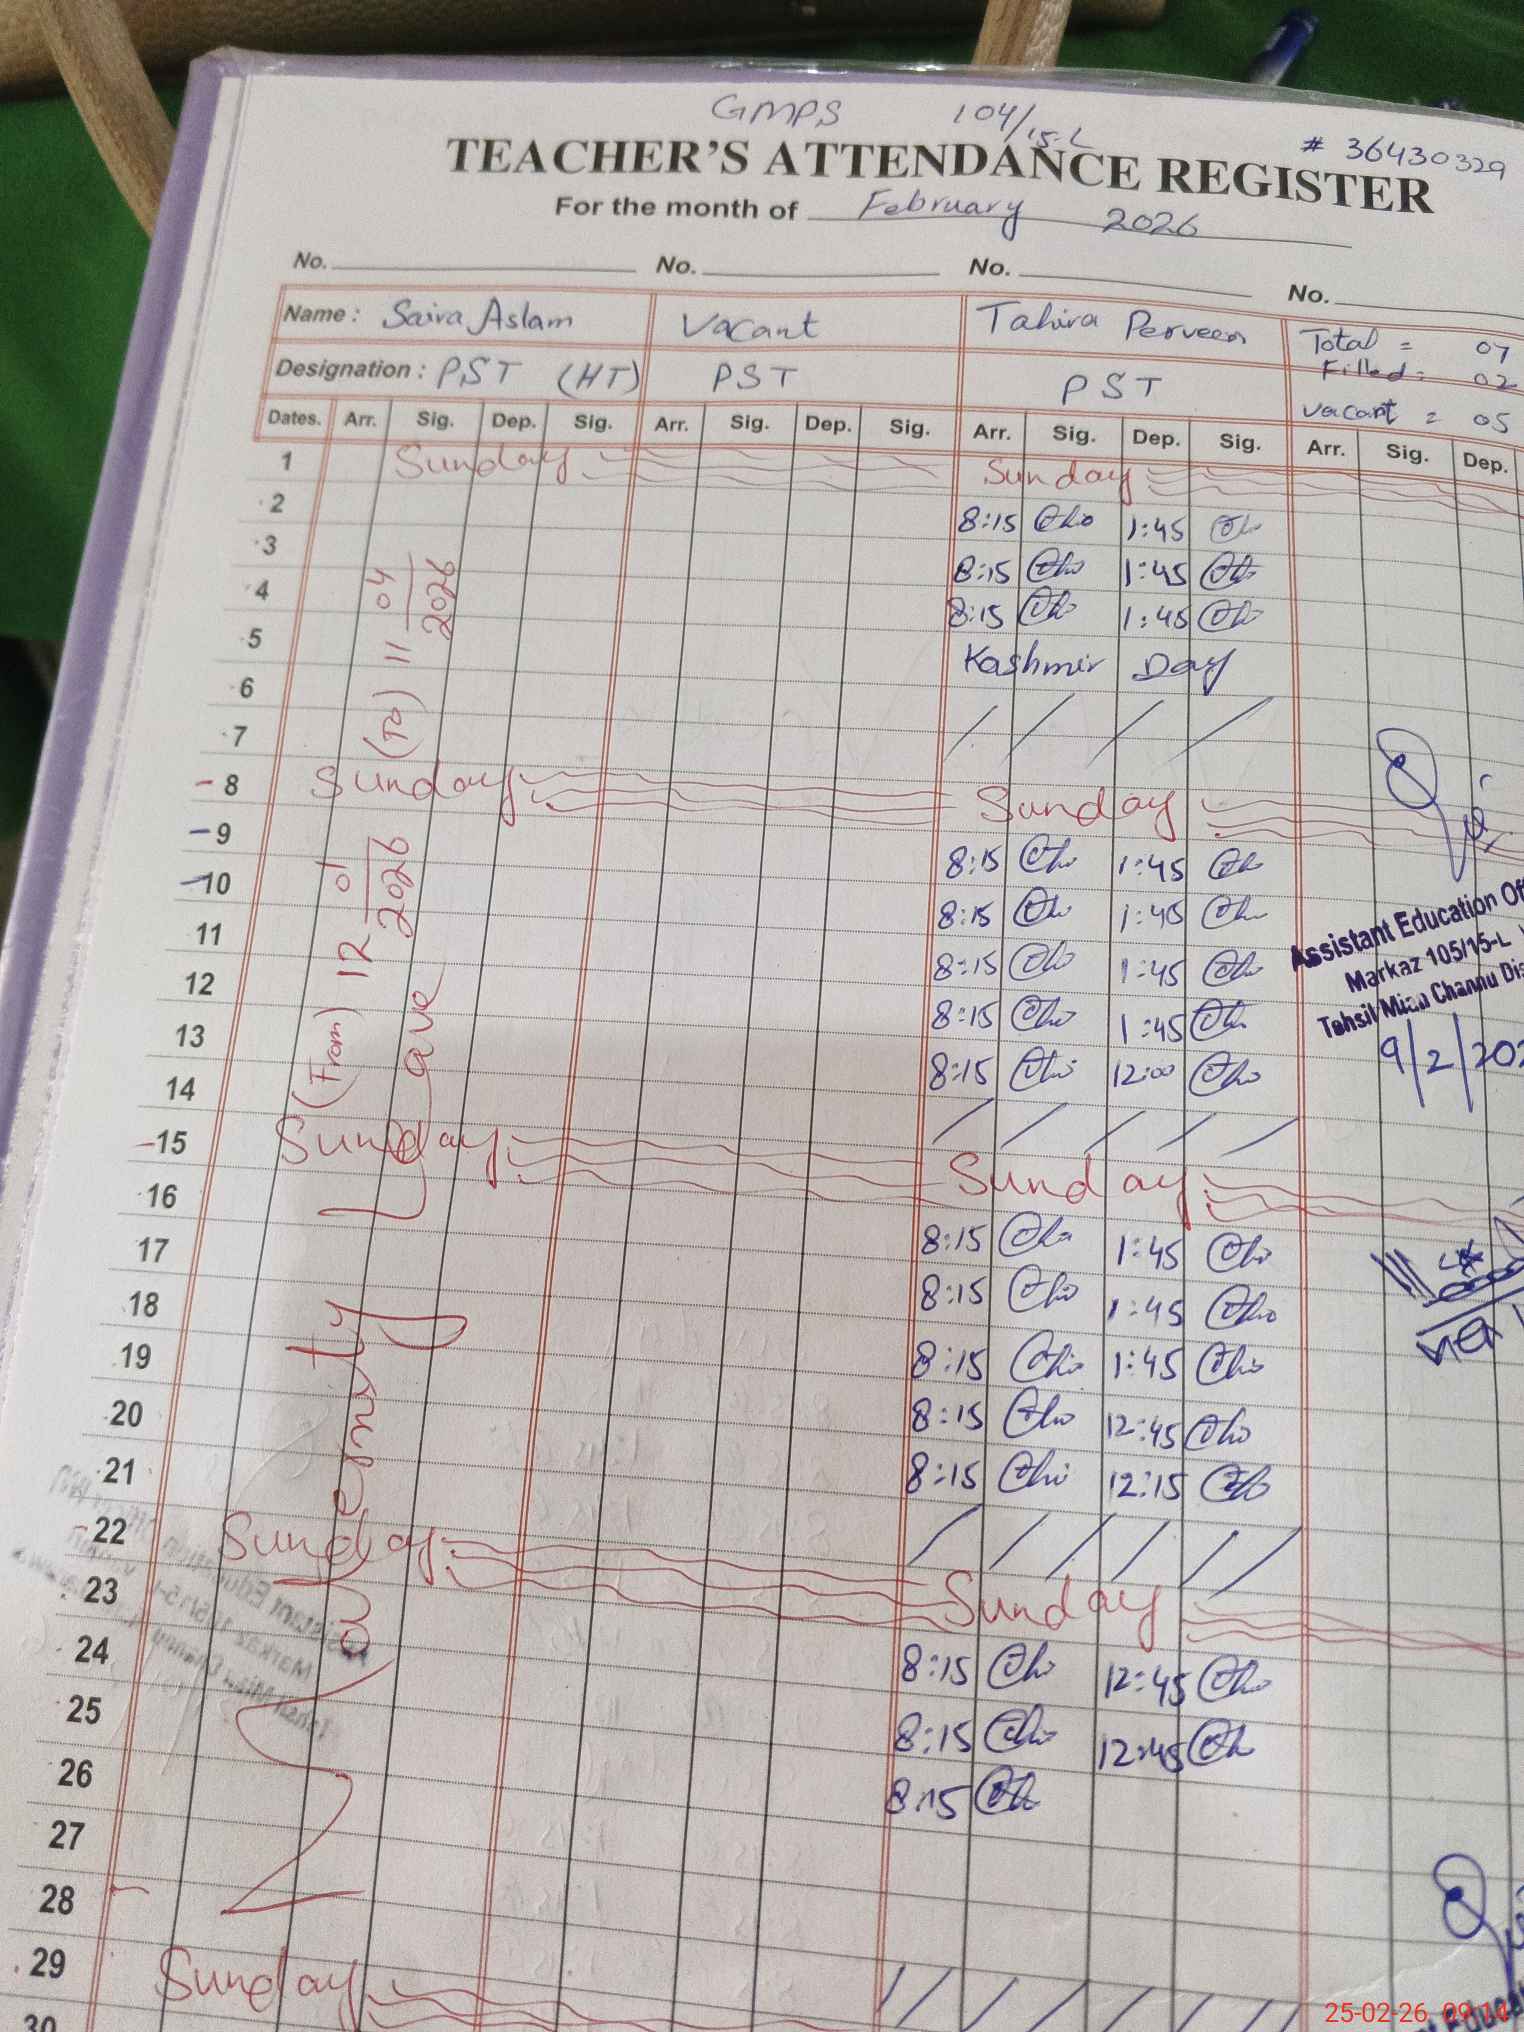 GMPS 104/15-L
# 36430329
TEACHER'S ATTENDANCE REGISTER
For the month of February 2026
No. No. No. No.
Name : Saira Aslam Vacant Tahira Perveen Total = 07
Filled = 02
Designation : PST (HT) PST PST
vacant = 05
Dates. Arr. Sig. Dep. Sig. Arr. Sig. Dep. Sig. Arr. Sig. Dep. Sig. Arr. Sig. Dep.
1 Sunday Sunday
2 8:15 1:45
3 8:15 1:45
4 8:15 1:45
5 Kashmir Day
6
7
8 Sunday Sunday
9 8:15 1:45
10 8:15 1:45
11 8:15 1:45
12 8:15 1:45
13 8:15 12:00
14
15 Sunday Sunday
16 8:15 1:45
17 8:15 1:45
18 8:15 1:45
19 8:15 12:45
20 8:15 12:15
21
22 Sunday Sunday
23 8:15 12:45
24 8:15 12:45
25 8:15
26
27
28
29 Sunday
30
Maternity Leave
(From) 12 01 2026 (To) 11 04 2026
Assistant Education
Markaz 105/15-L
Tehsil Mian Channu
9/2/202
25-02-26 09:14